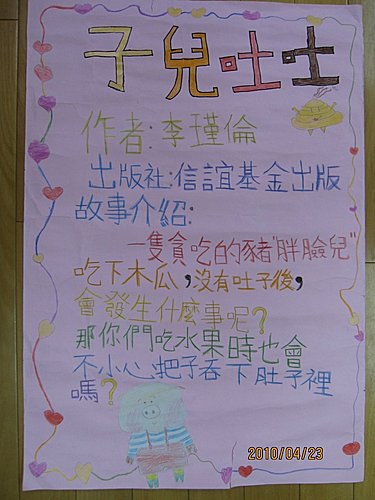 子兒吐吐
作者:李瑾倫
出版社:信誼基金出版
故事介紹:
一隻貪吃的豬"胖臉兒"
吃下木瓜,沒有吐子後,
會發生什麼事呢?
那你們吃水果時也會
不小心把子吞下肚子裡
嗎?
2010/04/23